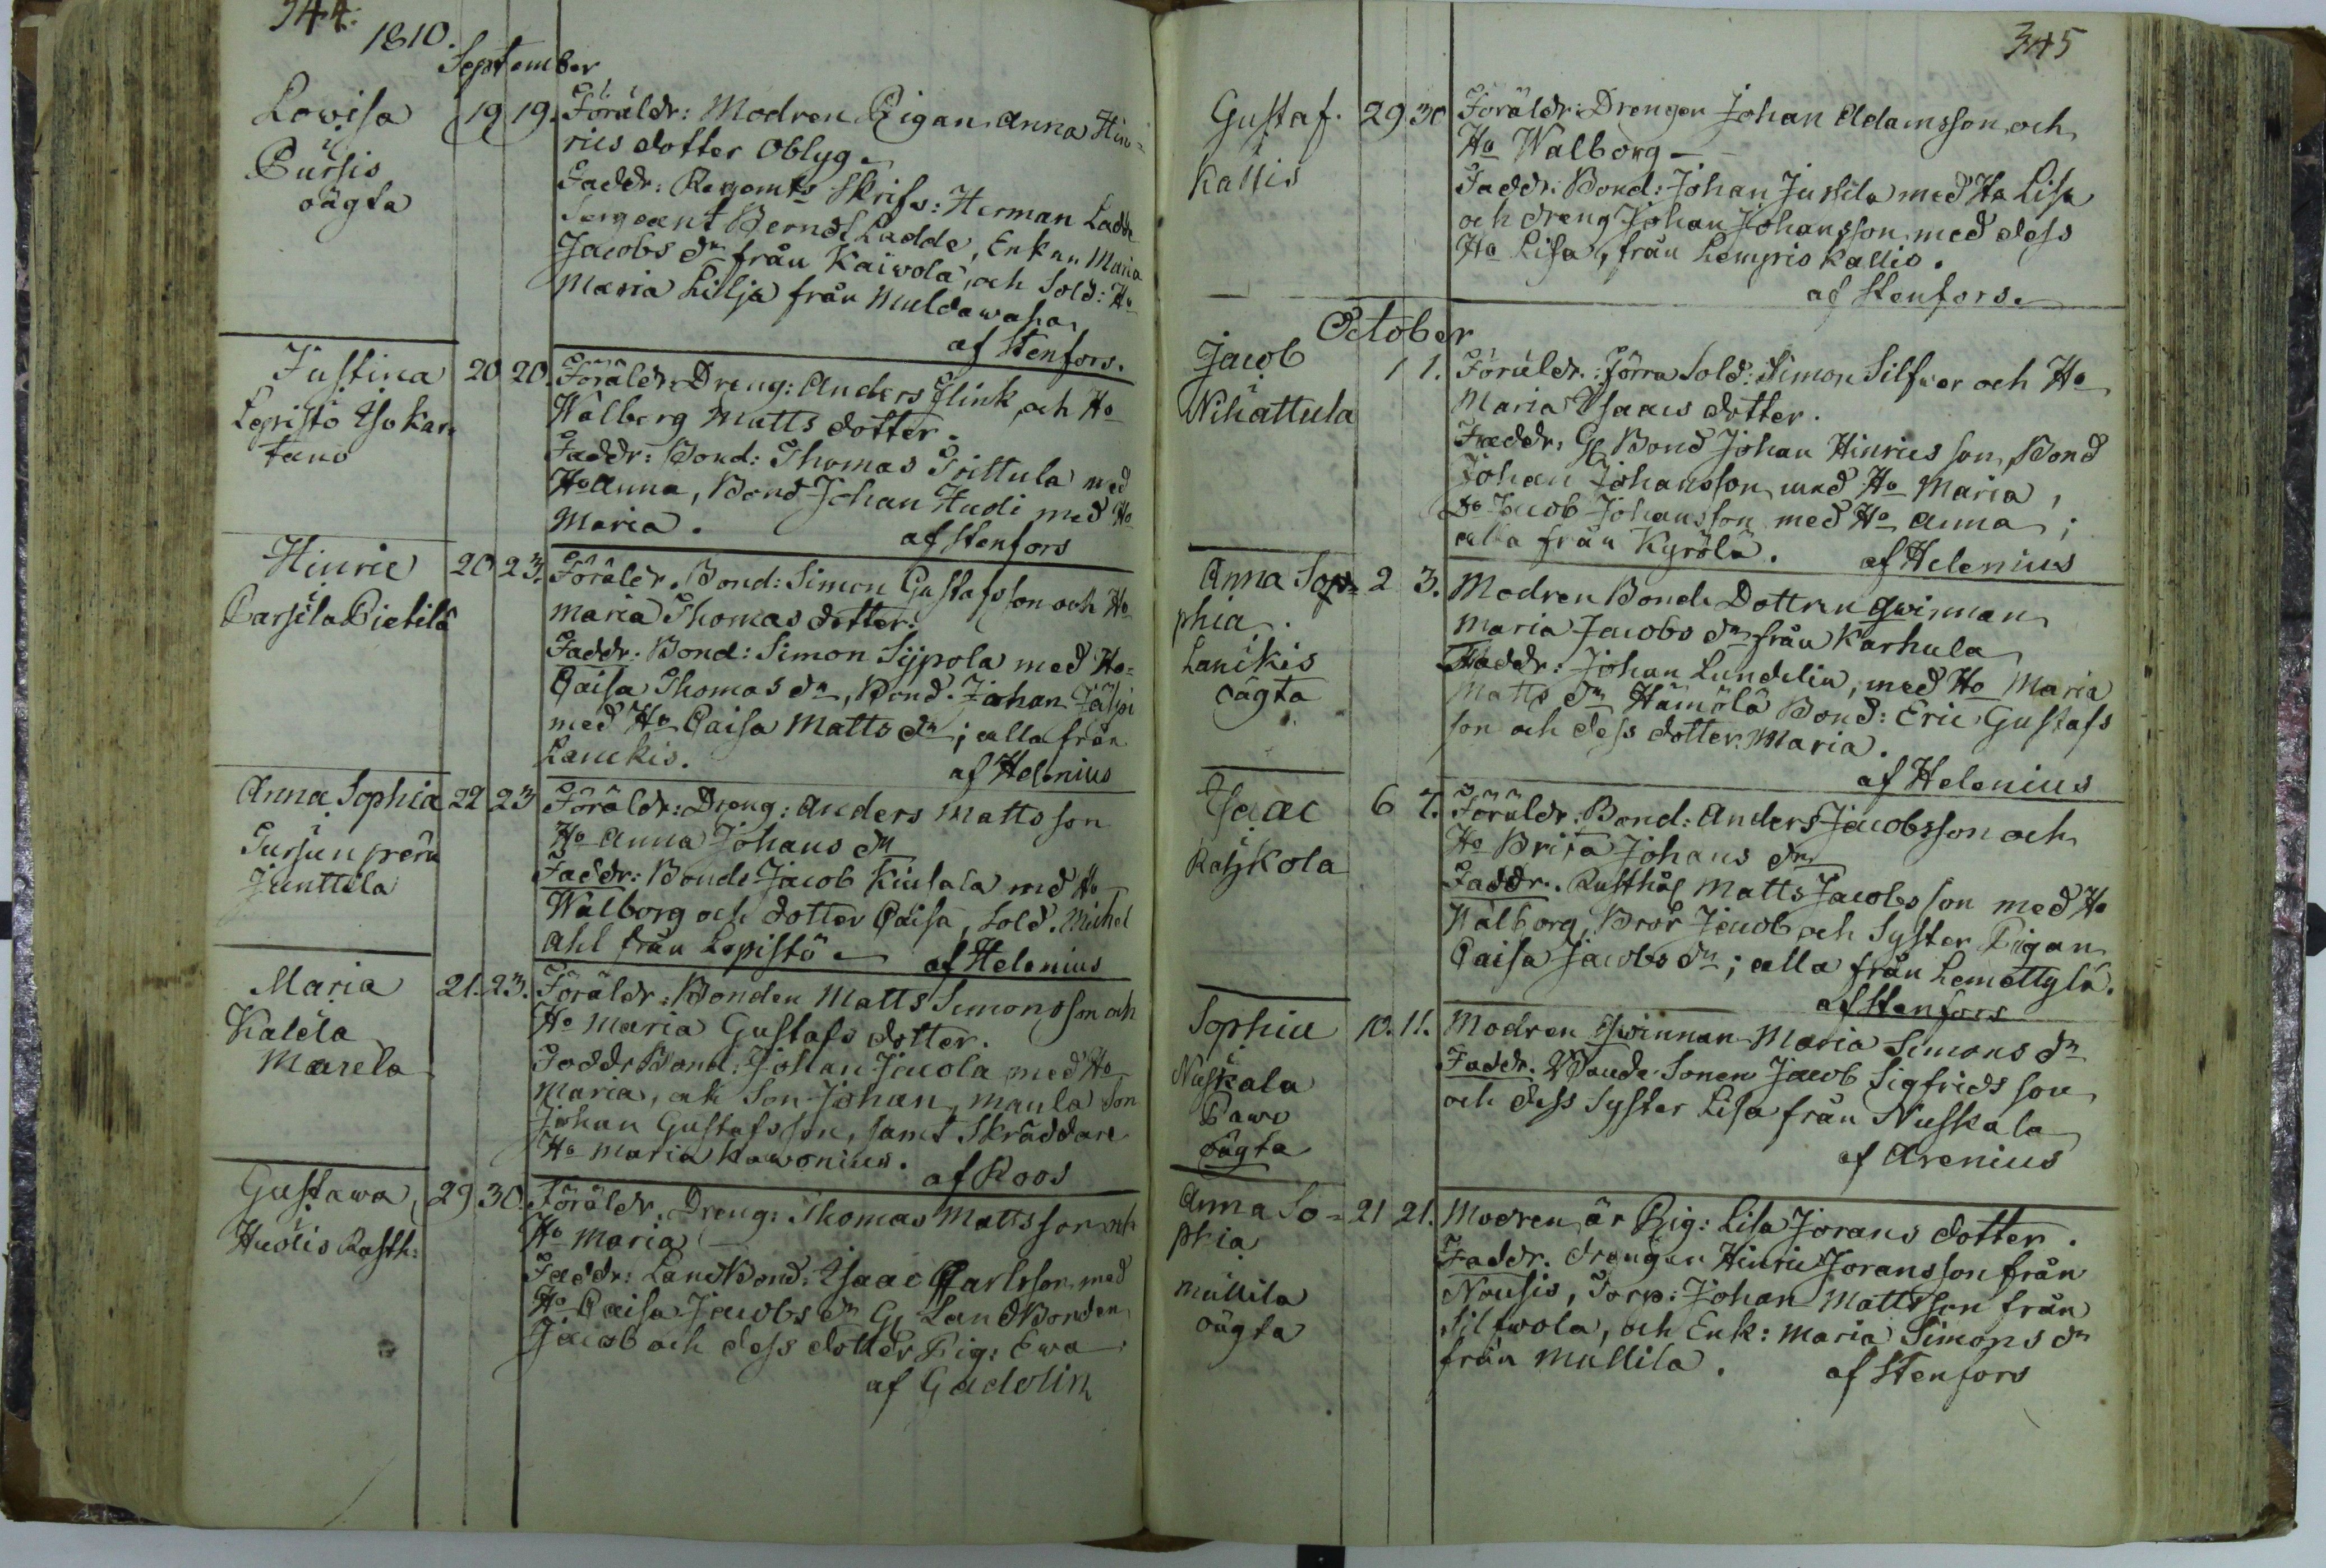 344.
1810.
September
Lowisa 19 19. Föräldr: Modren Pigan Anna Hin=
i Pursis rics dotter Oblyg.
oägta Faddr: Regemts Skrifv: Herman Ladde
Sergeant Berndt Ladde, Enkan Maria
Jacobs dr från Kaiwola, och Sold: Ho
Maria Lilja från Muldawaha
af Stenfors.
Justina 20 20 Föräldr: Dreng: Anders Flink och Ho
i Lepistö Isokar= Wålberg Matts dotter.
tano Faddr: Bond: Thomas Prittula med
Ho Anna, Bond Johan Hudi med Ho
Maria. af Stenfors
Hinric 20 23. Föräldr. Bond: Simon Gustafsson och Ho
i Parsila Pietilä Maria Thomas dotter.
Faddr. Bond: Simon Sijpola med Ho
Caisa Thomas dr, Bond. Johan Jäspi
med Ho Caisa Matts dr; alla från
Lanckis. af Helenius
Anna Sophia 22 23 Föräldr: Dreng: Anders Mattsson
Ho Anna Johans dr
Junttila Faddr: Bonde Jacob Kiusala med Ho
Wålborg och dotter Caisa, Sold. Michel
Ahl från Lepistö af Helenius
Maria 21. 23. Föräldr. Bonden Matts Simonsson och
i Kalela Ho Maria Gustafs dotter.
Marela Faddr Bond: Johan Jacola med Ho
Maria, och Son Johan, Maula Son
Johan Gustafsson, samt Skräddare
Ho Maria Kawonius. af Roos
Gustawa, 29 30. Föräldr. Dreng: Thomas Mattsson och
i Huolis Rusth: Ho Maria
Faddr: LandBond: Isaac Carlsson med
Ho Caisa Jacobs dr G LandBonden
Jacob och dess dotter Pig: Ewa
af Gadolin
345
Gustaf. 29 30 Föräldr: Drengen Johan Adamsson, och
i Kallis Ho Walborg
Faddr: Bond: Johan Jussila med Ho Lisa
och dreng Johan Johansson med dess
Ho Lisa, från Lempris Kallis.
af Stenfors.
October
Jacob 1 1. Föräldr.: förra Sold: Simon Silfver och Ho
i Nihattula Maria Isaacs dotter.
Faddr: G Bond Johan Hinricsson, Bond
Johan Johansson med Ho Maria,
Do Jacob Johansson med Ho Anna;
alla från Kyrölä. af Helenius
Anna So= 2 3. Modren Bonde Dottren Qwinnan
phia. Maria Jacobs dr från Karhula
Lanckis Faddr: Johan Lundelin, med Ho Maria
oägta Matts dr Hämölä Bond: Eric Gustafs
son och dess dotter Maria.
af Helenius
Isaac 6 7. Föräldr: Bond: Anders Jacobsson och
i Raiskola Ho Brita Johans dr
Faddr. Rusthål Matts Jacobsson med Ho
Wålborg, Bror Jacob och Syster Pigan
Caisa Jacobs dr; alla från Lemettylä.
af Stenfors
Sophia 10. 11. Modren Qwinnan Maria Simons dr
i Nuskala Faddr. Bonde Sonen Jacob Sigfridsson
Pawo och dess Syster Lisa från Nuskala
oägta af Arenius
Anna So= 21 21. Modren är Pig: Lisa Jörans dotter.
phia Faddr. drengen Hinric Joransson från
Mullila Nousis, Torp: Johan Mattsson från
oägta Silfwola, och Enk: Maria Simons dr
från Mullila. af Stenfors